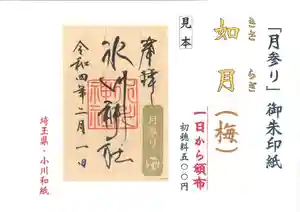 「月参り」御朱印紙
きさらぎ
如月(梅)
一日から頒布
初穂料五〇〇円
見本
奉拝
氷川神社
令和四年二月一日
月参り
埼玉県・小川和紙